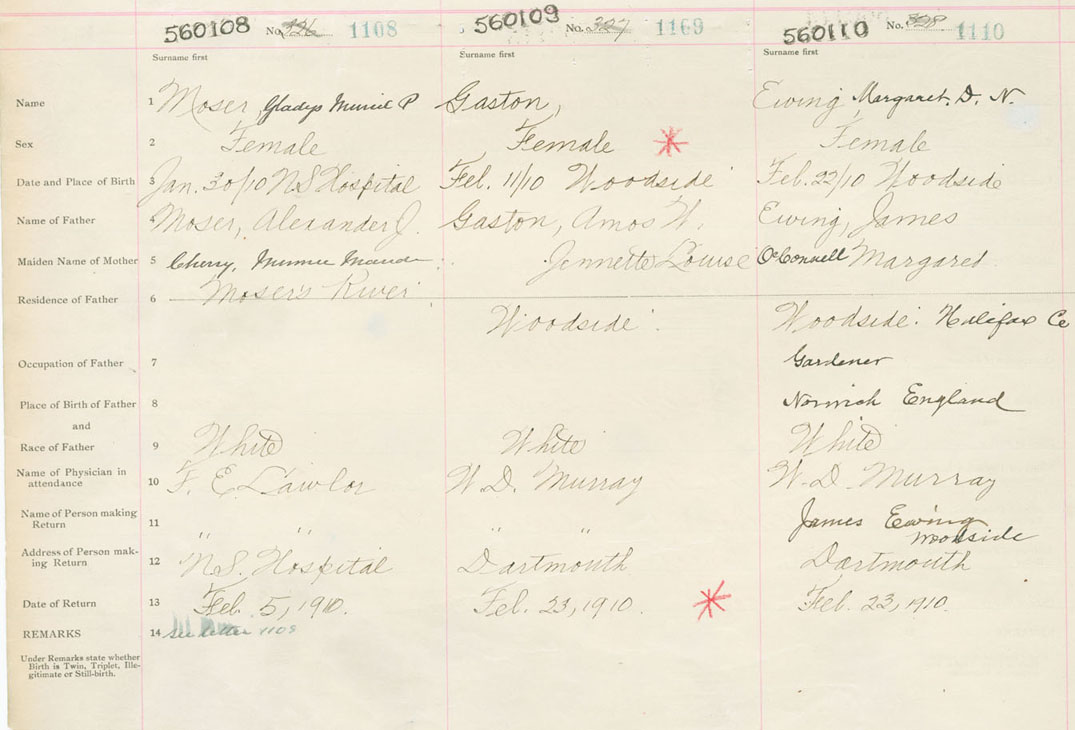 560108 No. 326 1108 560109 No. 327 1109 560110 No. 328 1110
Surname first Surname first Surname first
Name 1 Moser, Gladys Muriel P Gaston, Ewing Margaret. D. N.
Sex 2 Female Female Female
Date and Place of Birth 3 Jan. 30/10 N S Hospital Feb. 11/10 Woodside Feb. 22/10 Woodside
Name of Father 4 Moser, Alexander J. Gaston, Amos W. Ewing, James
Maiden Name of Mother 5 Cherry, Maude Jennette Louise O'Connell Margaret
Residence of Father 6 Moser's River Woodside Woodside. Halifax Co
Occupation of Father 7 Gardener
Place of Birth of Father 8 Norwich England
and
Race of Father 9 White White White
Name of Physician in
attendance 10 F. E. Lawlor W. D. Murray W. D. Murray
Name of Person making
Return 11 " " " " James Ewing
Woodside
Address of Person mak-
ing Return 12 N.S. Hospital Dartmouth Dartmouth
Date of Return 13 Feb. 5, 1910. Feb. 23, 1910. Feb. 23, 1910.
REMARKS 14 see letter 1108
Under Remarks state whether
Birth is Twin, Triplet, Ille-
gitimate or Still-birth.